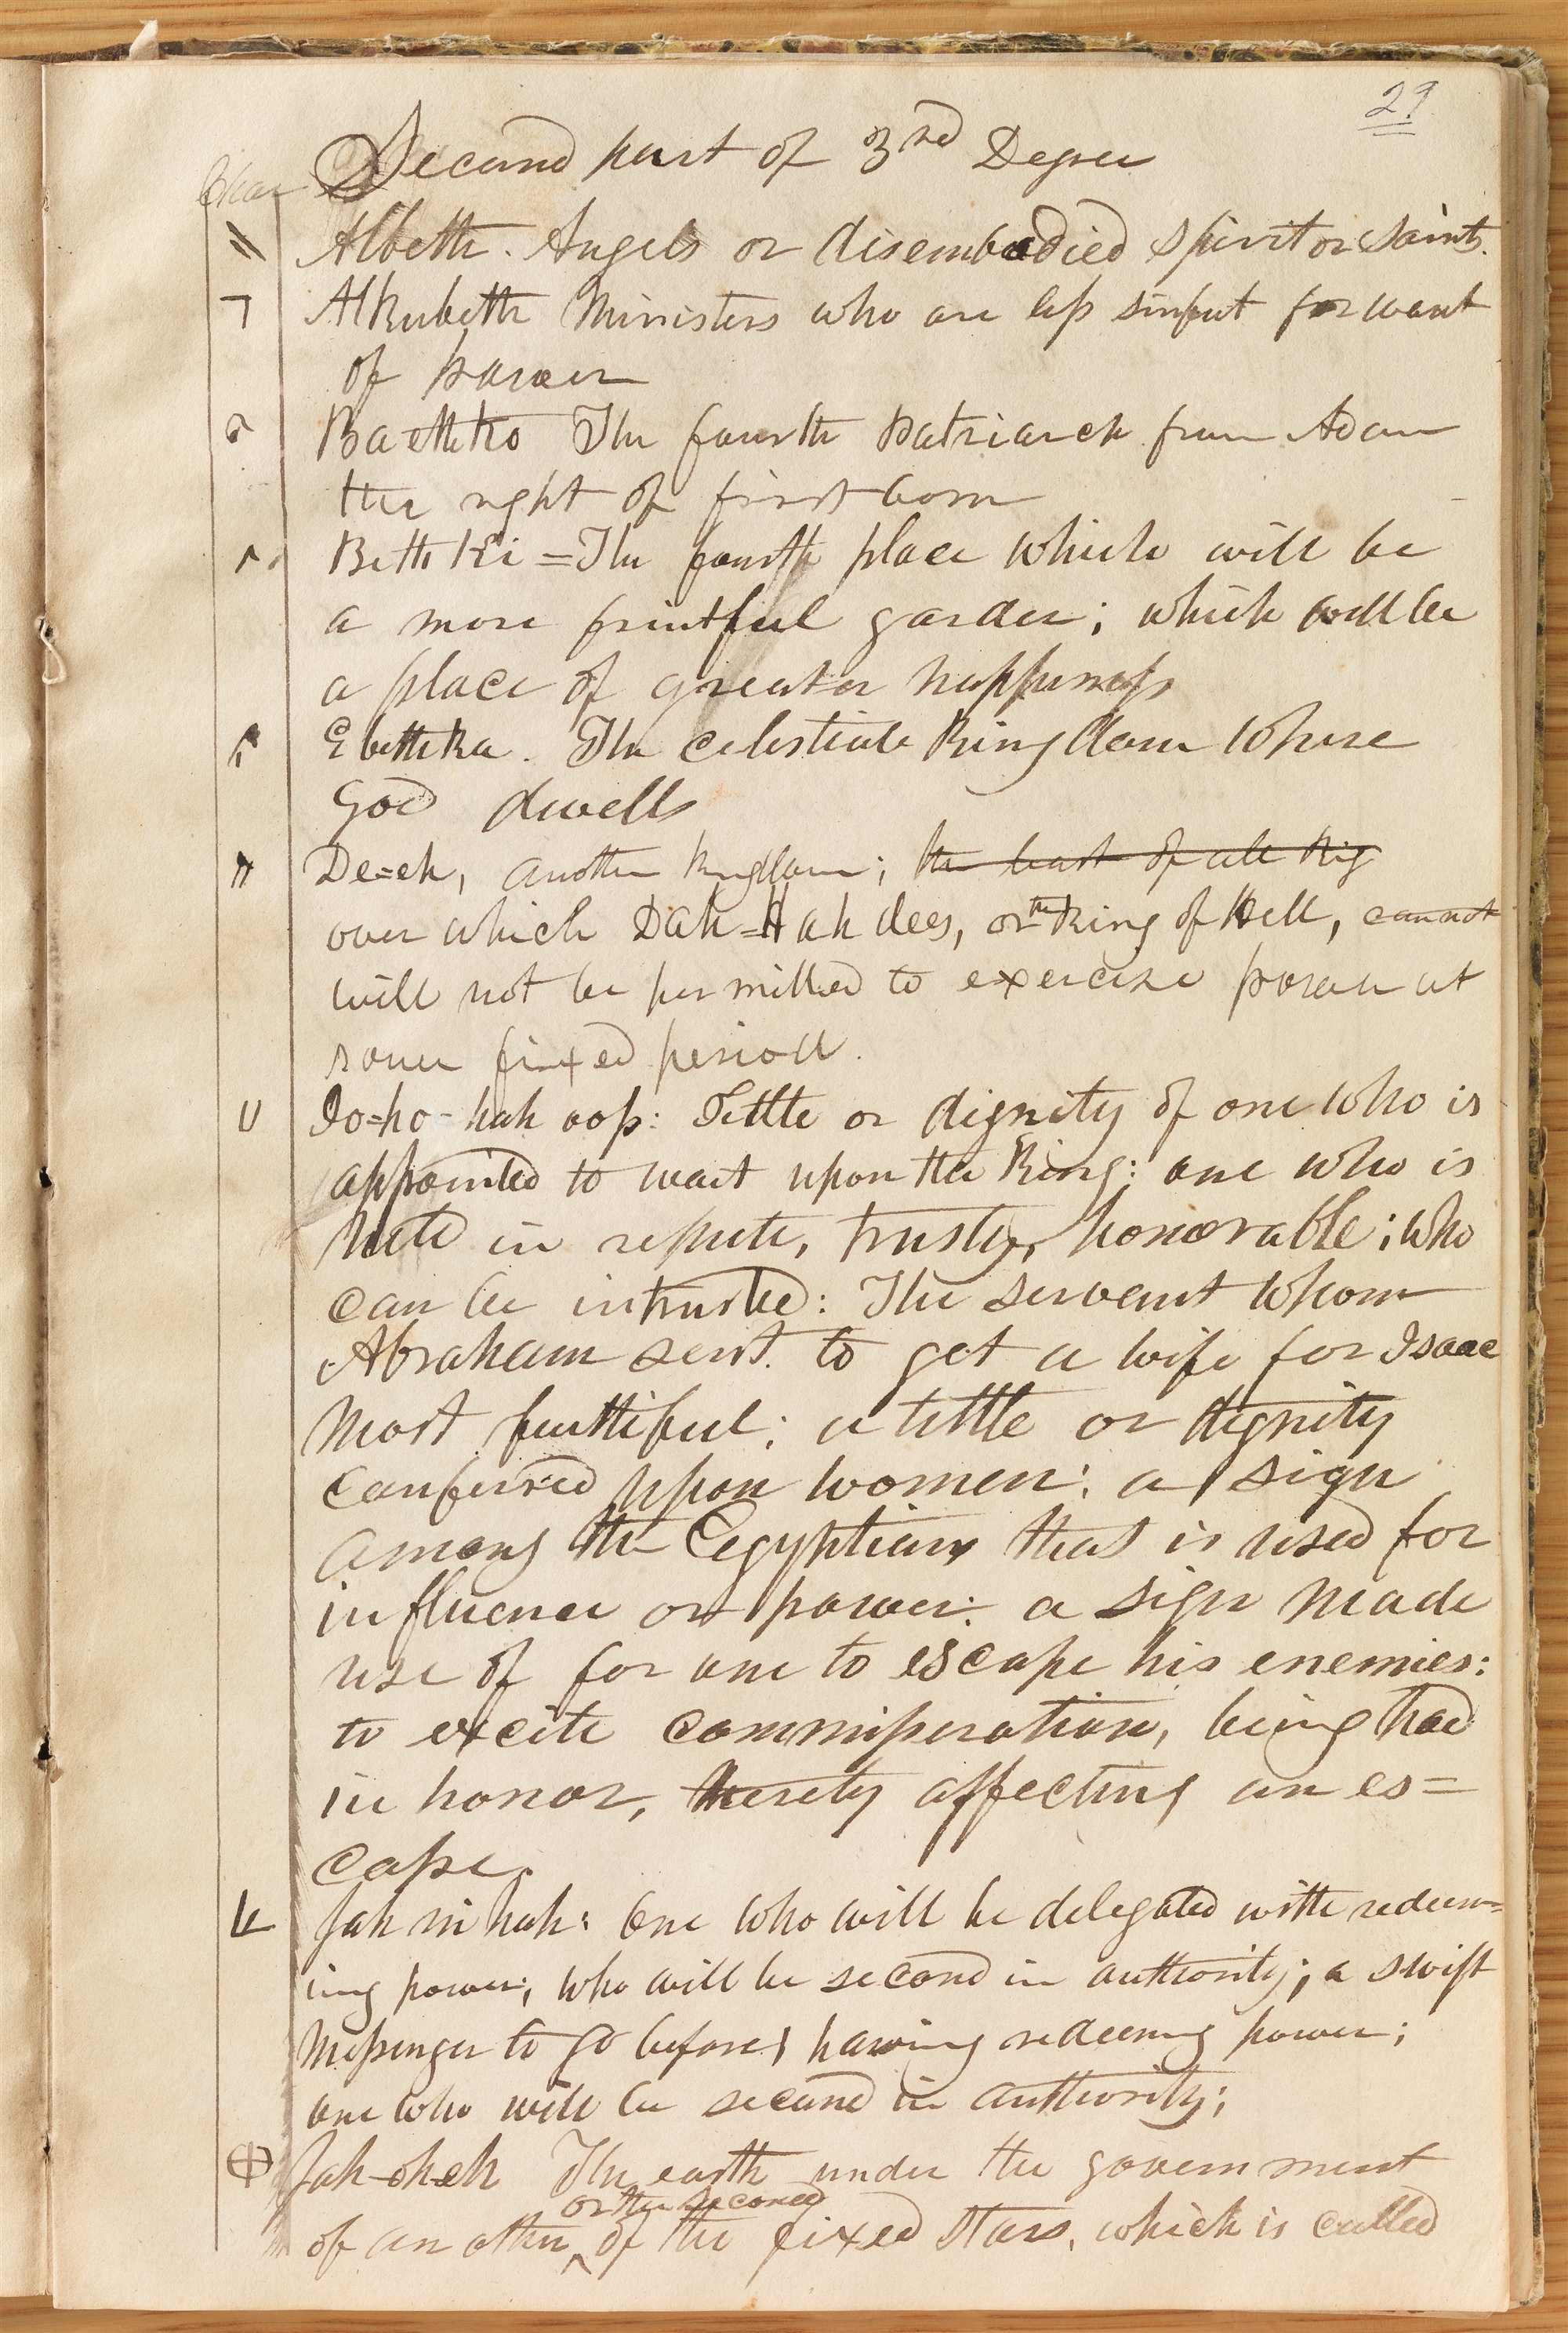 29
Char Second part of 3rd Degree
Albeth. Angels or disembodied spirit or saints.
Alkubeth Ministers who are less sinful for want
of power
Baethko The fourth patriarch from Adam
the right of first born
Beth Ki = The fourth place which will be
a more fruitful garden; which will be
a place of greater happiness
Ebethka. The celestiale Kingdom where
God dwells
De=eh, another kingdom; the least of all Kig
over which Dah=Hah dees, or the King of Hell, cannot
will not be permitted to exercise power at
some fixed period.
Io=ho=hah oop: Tittle or dignity of one who is
appointed to wait upon the King: one who is
held in repute, trusty, honorable; who
can be intrusted: The servant whom
Abraham sent. to get a wife for Isaac
most faithful; a tittle or dignity
conferred upon women: a sign
among the Egyptians that is used for
influence or power: a sign made
use of for one to escape his enemies:
to excite commisseration, being had
in honor, thereby affecting an es=
cape.
Jah ni hah: One who will be delegated with redeem=
ing power; who will be second in authority; a swift
messenger to go before, having redeeming power;
one who will be second in authority;
Jah-oh-eh The earth under the government
or the second
of an other of the fixed stars, which is called